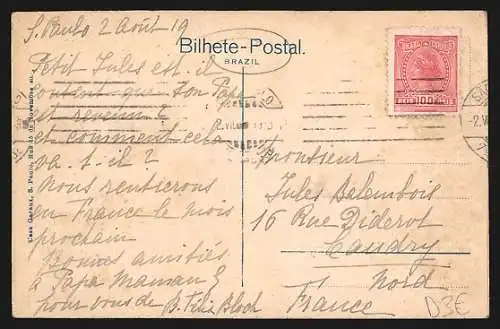 S. Paulo 2 Août 19
Bilhete-Postal.
BRAZIL
Petit Jules est-il
content que son Papa
est revenu ?
et comment cela
va-t-il ?
Nous rentrerons
en France le mois
prochain
Bonnes amitiés
à Papa Maman &
pour vous de B. Bloch
Monsieur
Jules
16 Rue Diderot
Caudry
Nord
France
100
D3E